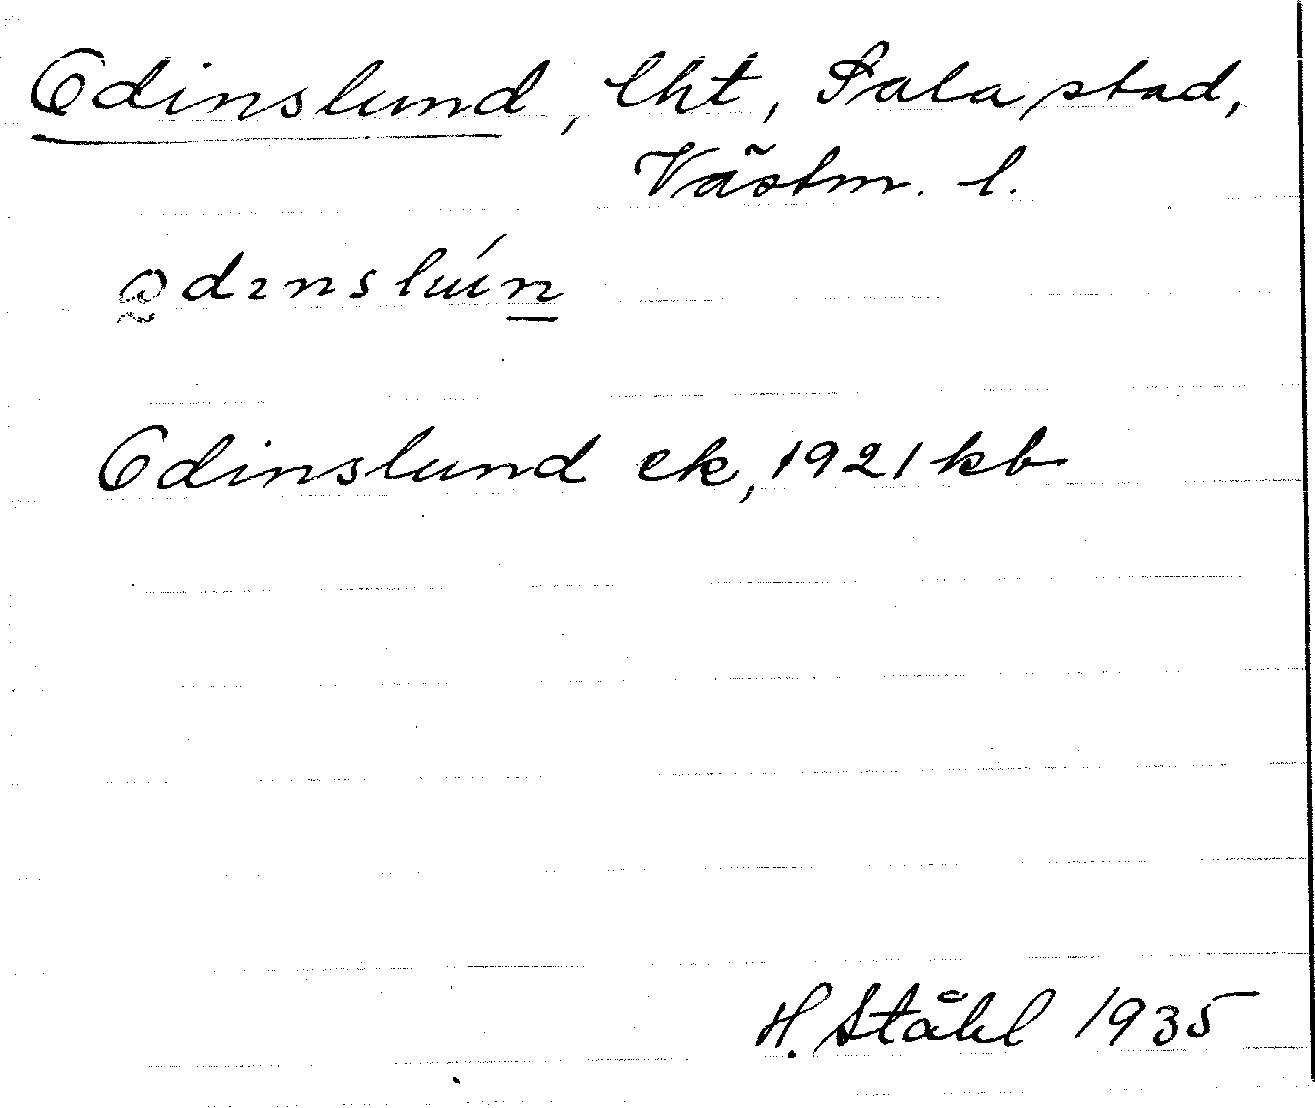 Odinslund, lht, Sala stad,
Västm. l.
Odinslund ek, 1921 kb
H. Ståhl 1935